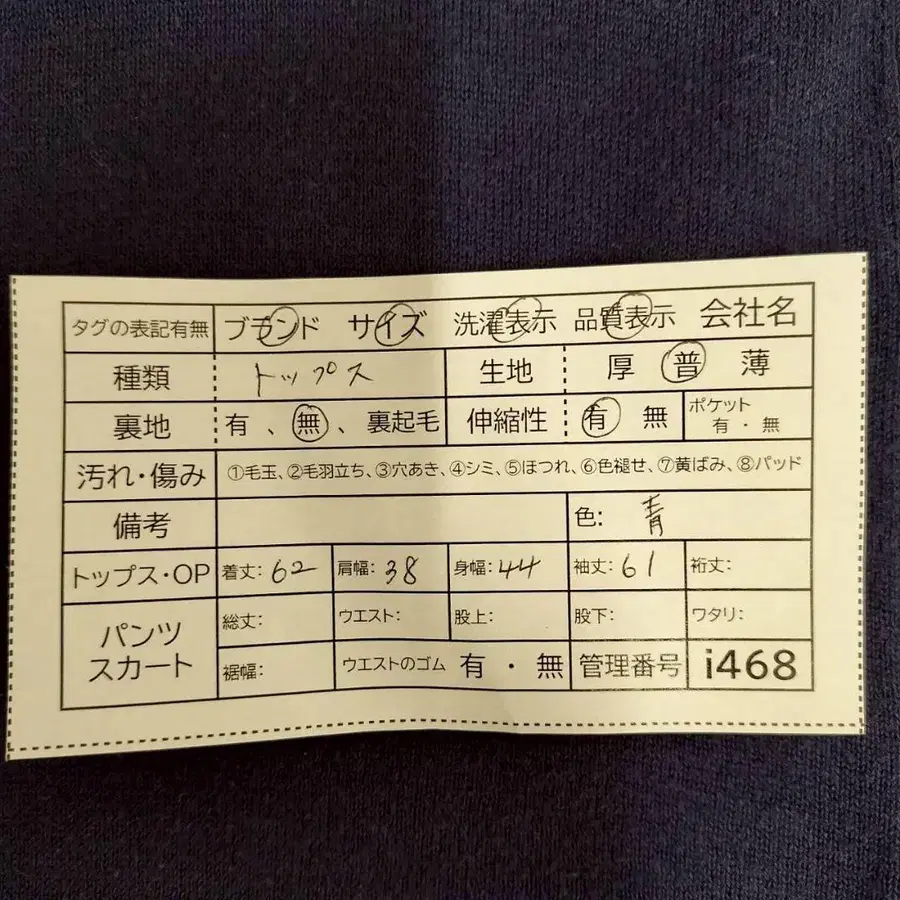 タグの表記有無 ブランド サイズ 洗濯表示 品質表示 会社名
種類 トップス 生地 厚 普 薄
裏地 有 、無、裏起毛 伸縮性 有 無 ポケット 有・無
汚れ・傷み ①毛玉、②毛羽立ち、③穴あき、④シミ、⑤ほつれ、⑥色褪せ、⑦黄ばみ、⑧パッド
備考 色: 青
トップス・OP 着丈: 62 肩幅: 38 身幅: 44 袖丈: 61 裄丈:
パンツ スカート 総丈: ウエスト: 股上: 股下: ワタリ:
裾幅: ウエストのゴム 有・無 管理番号 i468